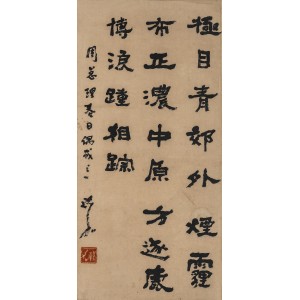 極目青郊外煙霾
布正濃中原方逐鹿
博浪踵相踪
周總理春日偶成之一